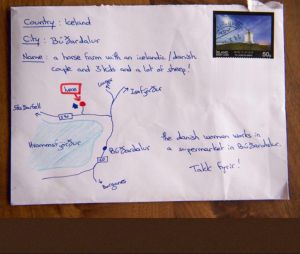 Country : Iceland
City : Búðardalur
Name : a horse farm with an icelandic/danish
couple and 3 kids and a lot of sheep!
here
Ísafjörður
Hvammsfjörður
Búðardalur
60
the danish woman works in
a supermarket in Búðardalur.
Takk fyrir!